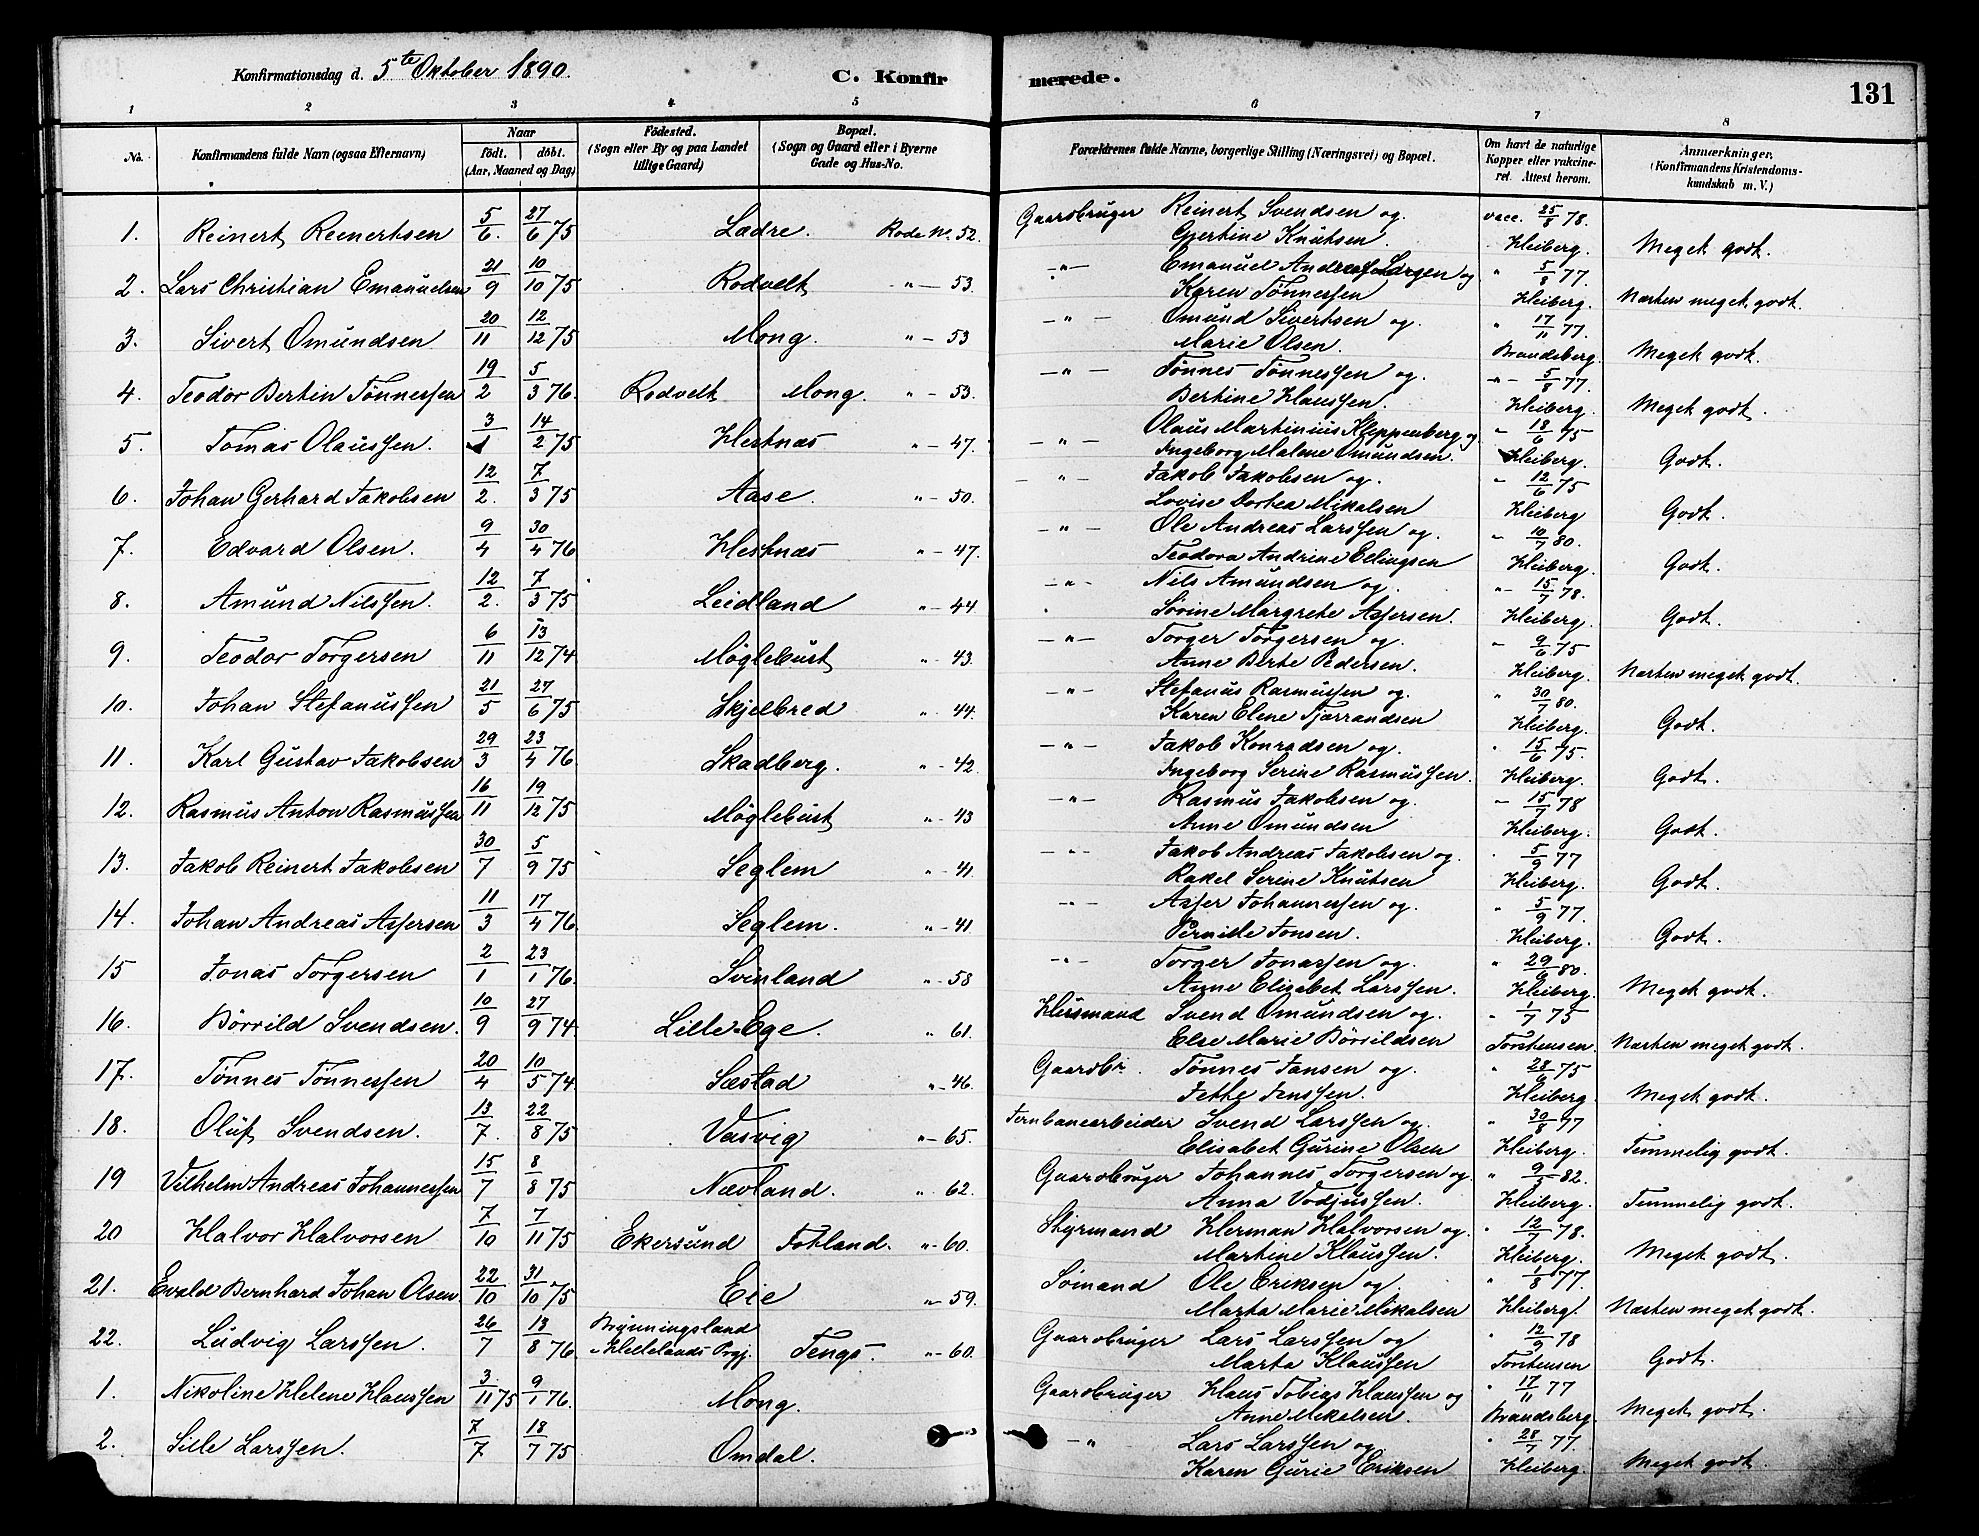 Konfirmationsdag d. 5te Oktober 1890. C. Konfirmerede. 131
1 2 3 4 5 6 7 8
No. Konfirmandens fulde Navn (ogsaa Efternavn) Naar födt. döbt. (Aar, Maaned og Dag) Födested. (Sogn eller By og paa Landet tillige Gaard) Bopæl. (Sogn og Gaard eller i Byerne Gade og Hus-No. Forældrenes fulde Navne, borgerlige Stilling (Næringsvei) og Bopæl. Om havt de naturlige Kopper eller vakcineret. Attest herom. Anmærkninger. (Konfirmandens Kristendomskundskab m. V.)
1. Reinert Reinertsen 5/6. 27/6 75 Lædre. Rode No. 52. Gaardbruger Reinert Svendsen og vacc. 25/8 78.
Gjertine Knutsen. Heiberg. Meget godt.
2. Lars Christian Emanuelsen 21/9 10/10 75 Rodvelt " — 53. —"— Emanuel Andreas Largen og " 5/8 77.
Karen Tönnessen Heiberg. Næsten meget godt.
3. Sivert Omundsen 20/11 12/12 75 Mong. " — 53 —"— Omund Sivertsen og. " 17/11 77.
Marie Olsen. Brandsberg. Meget godt.
4. Teodor Bertin Tönnessen 19/2 5/3 76. Rodvelt Mong. " — 53. —"— Tönnes Tönnessen og. —"— 5/8 77.
Bertine Klaussen. Heiberg. Meget godt.
5. Tomas Olaussen. 3/1 14/2 75 Hestnæs " — 47. —"— Olaus Martinius Kleppenberg og " 18/6 75
Ingeborg Malene Omundsen. Heiberg. Godt.
6. Johan Gerhard Jakobsen 12/2. 7/3 75 Aase. " — 50. —"— Jakob Jakobsen og. " 12/6 75
Lovise Dortea Mikalsen Heiberg Godt.
7. Edvard Olsen. 9/4 30/4 76 Hestnæs " — 47. —"— Ole Andreas Larssen og. " 10/7 80.
Teodora Andrine Ellingsen Heiberg. Godt.
8. Amund Nilssen. 12/2. 7/3 75 Leidland " — 44 —"— Nils Amundsen og. —"— 15/7 78.
Sörine Margrete Assersen. Heiberg. Godt.
9. Teodor Torgersen 6/11 13/12 74 Möglebust " — 43. —"— Torger Torgersen og. " 9/6 75
Anne Berte Pedersen. Heiberg. Næsten meget godt.
10. Johan Stefanussen 21/5 27/6 75 Skjelbred " — 44. —"— Stefanus Rasmussen og. " 30/7 80.
Karen Elene Tjærrandsen Heiberg. Godt.
11. Karl Gustav Jakobsen 29/3 23/4 76 Skadberg. " — 42 —"— Jakob Konradsen og. " 15/6 75
Ingeborg Serine Rasmussen. Heiberg. Godt.
12. Rasmus Anton Rasmussen 16/11 19/12 75 Möglebust " — 43 —"— Rasmus Jakobsen og. — 15/7 78
Anne Omundsen Heiberg. Godt.
13. Jakob Reinert Jakobsen 30/7 5/9 75 Seglem " — 41 —"— Jakob Andreas Jakobsen og. " 5/9 77
Rakel Serine Knutsen Heiberg. Godt.
14. Johan Andreas Assersen 11/3 17/4 76 Seglem. " — 41 —"— Asser Johannessen og. " 5/9 77.
Pernille Jonsen. Heiberg. Godt.
15 Jonas Torgersen 2/1 23/1 76. Svinland " — 58 —"— Torger Jonassen og. " 29/6 80.
Anne Elisabet Larssen. Heiberg. Meget godt.
16. Börrild Svendsen. 10/9 27/9 74. Lille Ege. " 61. Husmand Svend Omundsen og. " 1/7 75
Else Marie Börrildsen Torstensen. Næsten meget godt.
17. Tönnes Tönnessen 20/4 10/5 74. Sæstad " — 46. Gaardbr. Tönnes Jansen og. " 28/6 75
Jette Jenssen. Heiberg. Meget godt.
18. Oluf Svendsen. 13/7. 22/8 75 Vasvig " — 65. Jernbanearbeider Svend Larssen og. " 30/8 77
Elisabet Gurine Olsen Heiberg. Temmelig godt.
19 Vilhelm Andreas Johannessen 15/7 8/8 75 Nævland. " 62. Gaardbruger Johannes Torgersen og. " 82.
Anna Vodjussen. Heiberg. Temmelig godt.
20 Halvor Halvorsen 7/10 7/11 75 Ekersund Fotland. " — 60. Styrmand Herman Halvorsen og. " 12/7 78.
Martine Klaussen. Heiberg. Meget godt.
21. Evald Bernhard Johan Olsen. 22/10 31/10 75 Eie " — 59. Sömand Ole Eriksen og. " 1/8 77.
Marta Marie Mikalsen Heiberg. Næsten meget godt.
22. Ludvig Larssen. 26/7 13/8 76. Brynningsland Hellelands Prgj. Tengs. " — 60. Gaardbruger Lars Larssen og " 12/9 78
Marta Klaussen Torstensen Godt.
1. Nikoline Helene Klaussen 3/11 75 9/1 76. Mong. Gaardbruger Klaus Tobias Klaussen og " 17/11 77
Anne Mikalsen. Brandsberg. Meget godt.
2. Sille Larssen. 7/7 18/7 75 Omdal. —" Lars Larssen og " 28/7 77.
Karen Gurie Eriksen Heiberg. Meget godt.